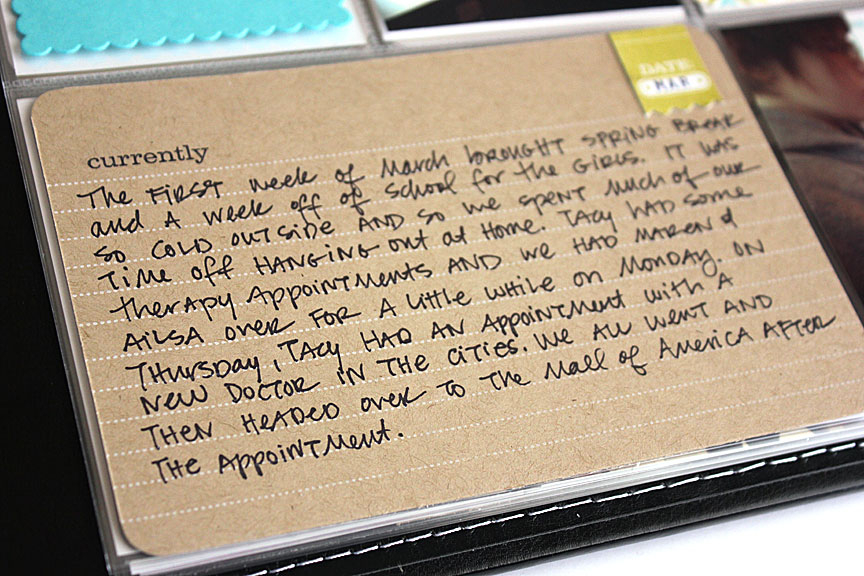 DATE:
MAR
currently
The FIRST week of March brought SPRING BREAK
and A week off of school for the GIRLS. IT WAS
SO COLD OUTSIDE AND SO we SPENT Much of our
Time off HANGING out at Home. TACY HAD some
therapy Appointments AND we HAD MAREN &
AILSA over FOR A little while on MONDAY. ON
THURSDAY, TACY HAD AN Appointment with A
NEW DOCTOR IN THE CITIES. WE All WENT AND
THEN HEADED over TO THE Mall of America AFTER
THE APPOINTMENT.